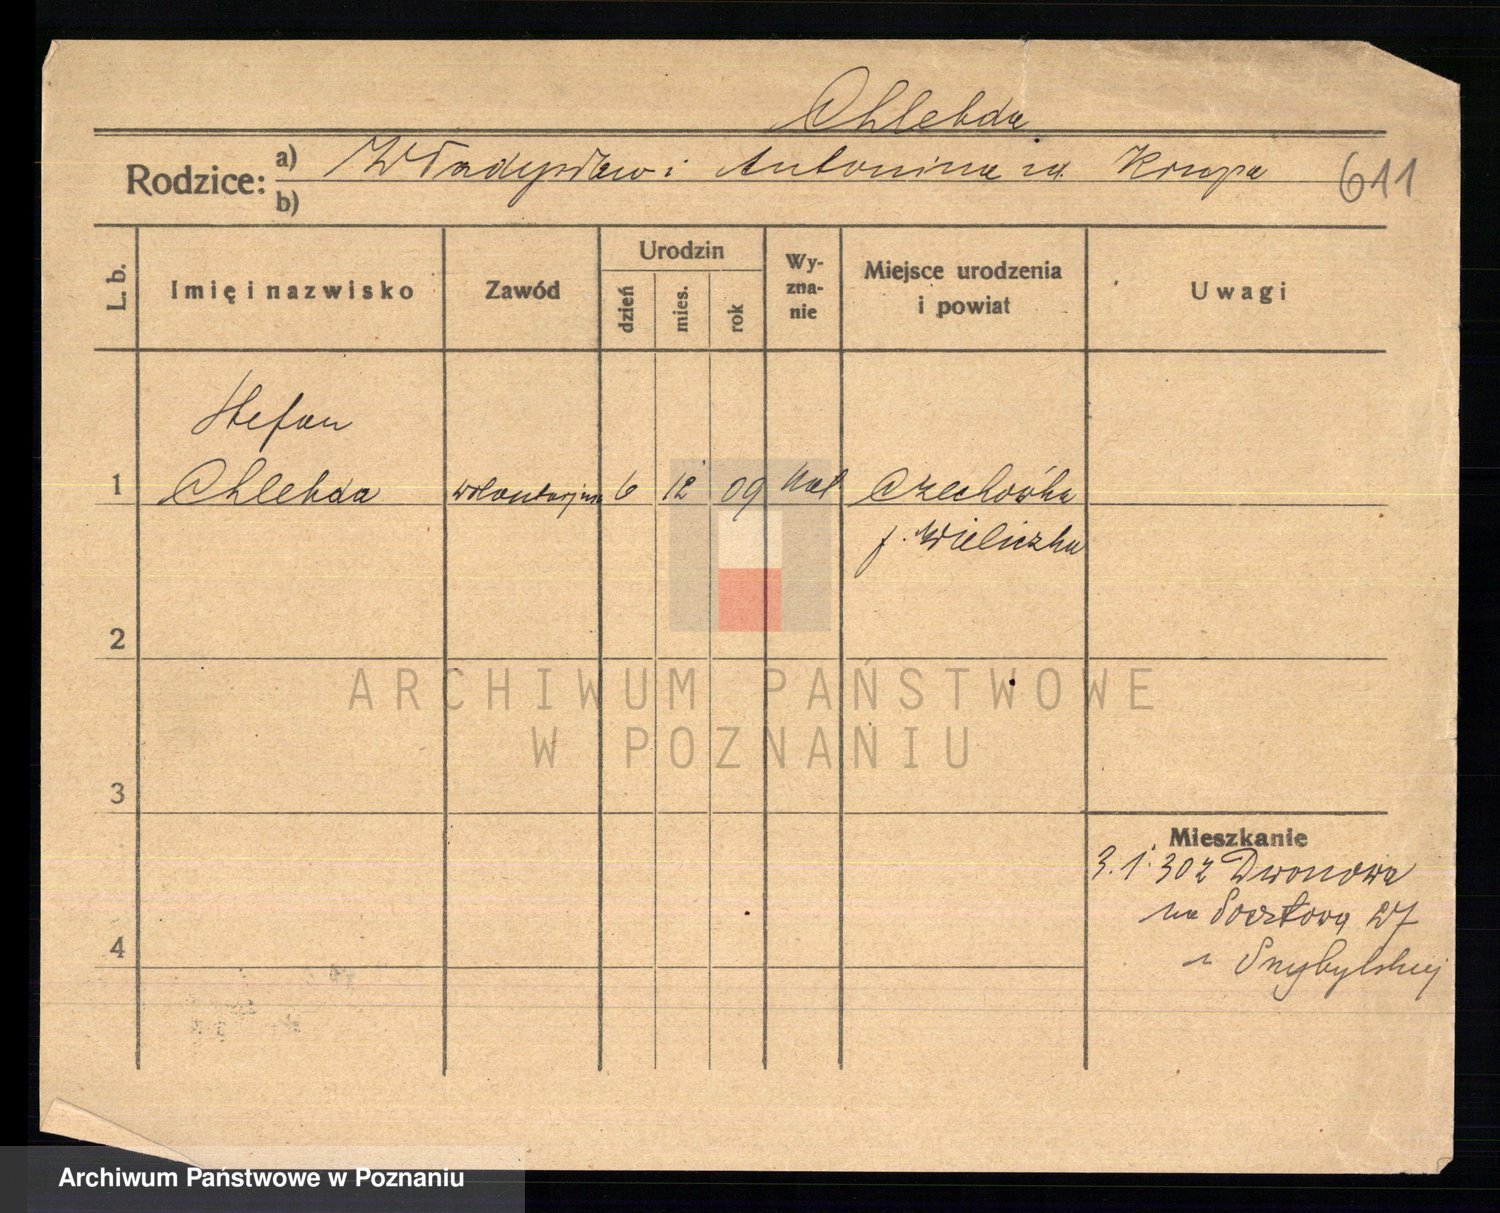 Chlebda
Rodzice: a) Władysław i Antonina rd. Krupa 611
b)
L. b.
Imię i nazwisko
Zawód
Urodzin
dzień
mies.
rok
Wy-
zna-
nie
Miejsce urodzenia
i powiat
Uwagi
Stefan
1 Chlebda 6 12 09 kat Czechówka
p. Wieliczka
2
ARCHIWUM PAŃSTWOWE
W POZNANIU
3
Mieszkanie
3.1.30 z Dworcowa
na Pocztową 27
4
Archiwum Państwowe w Poznaniu